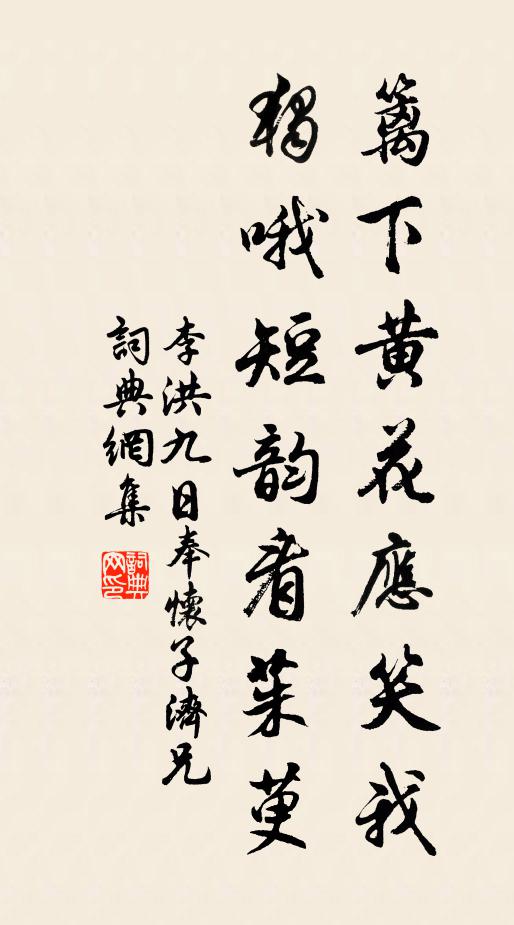 籬下黄花應笑我
獨哦短韵看茱萸
李洪九日奉懷子濟兄
詞典網集
詞典網印